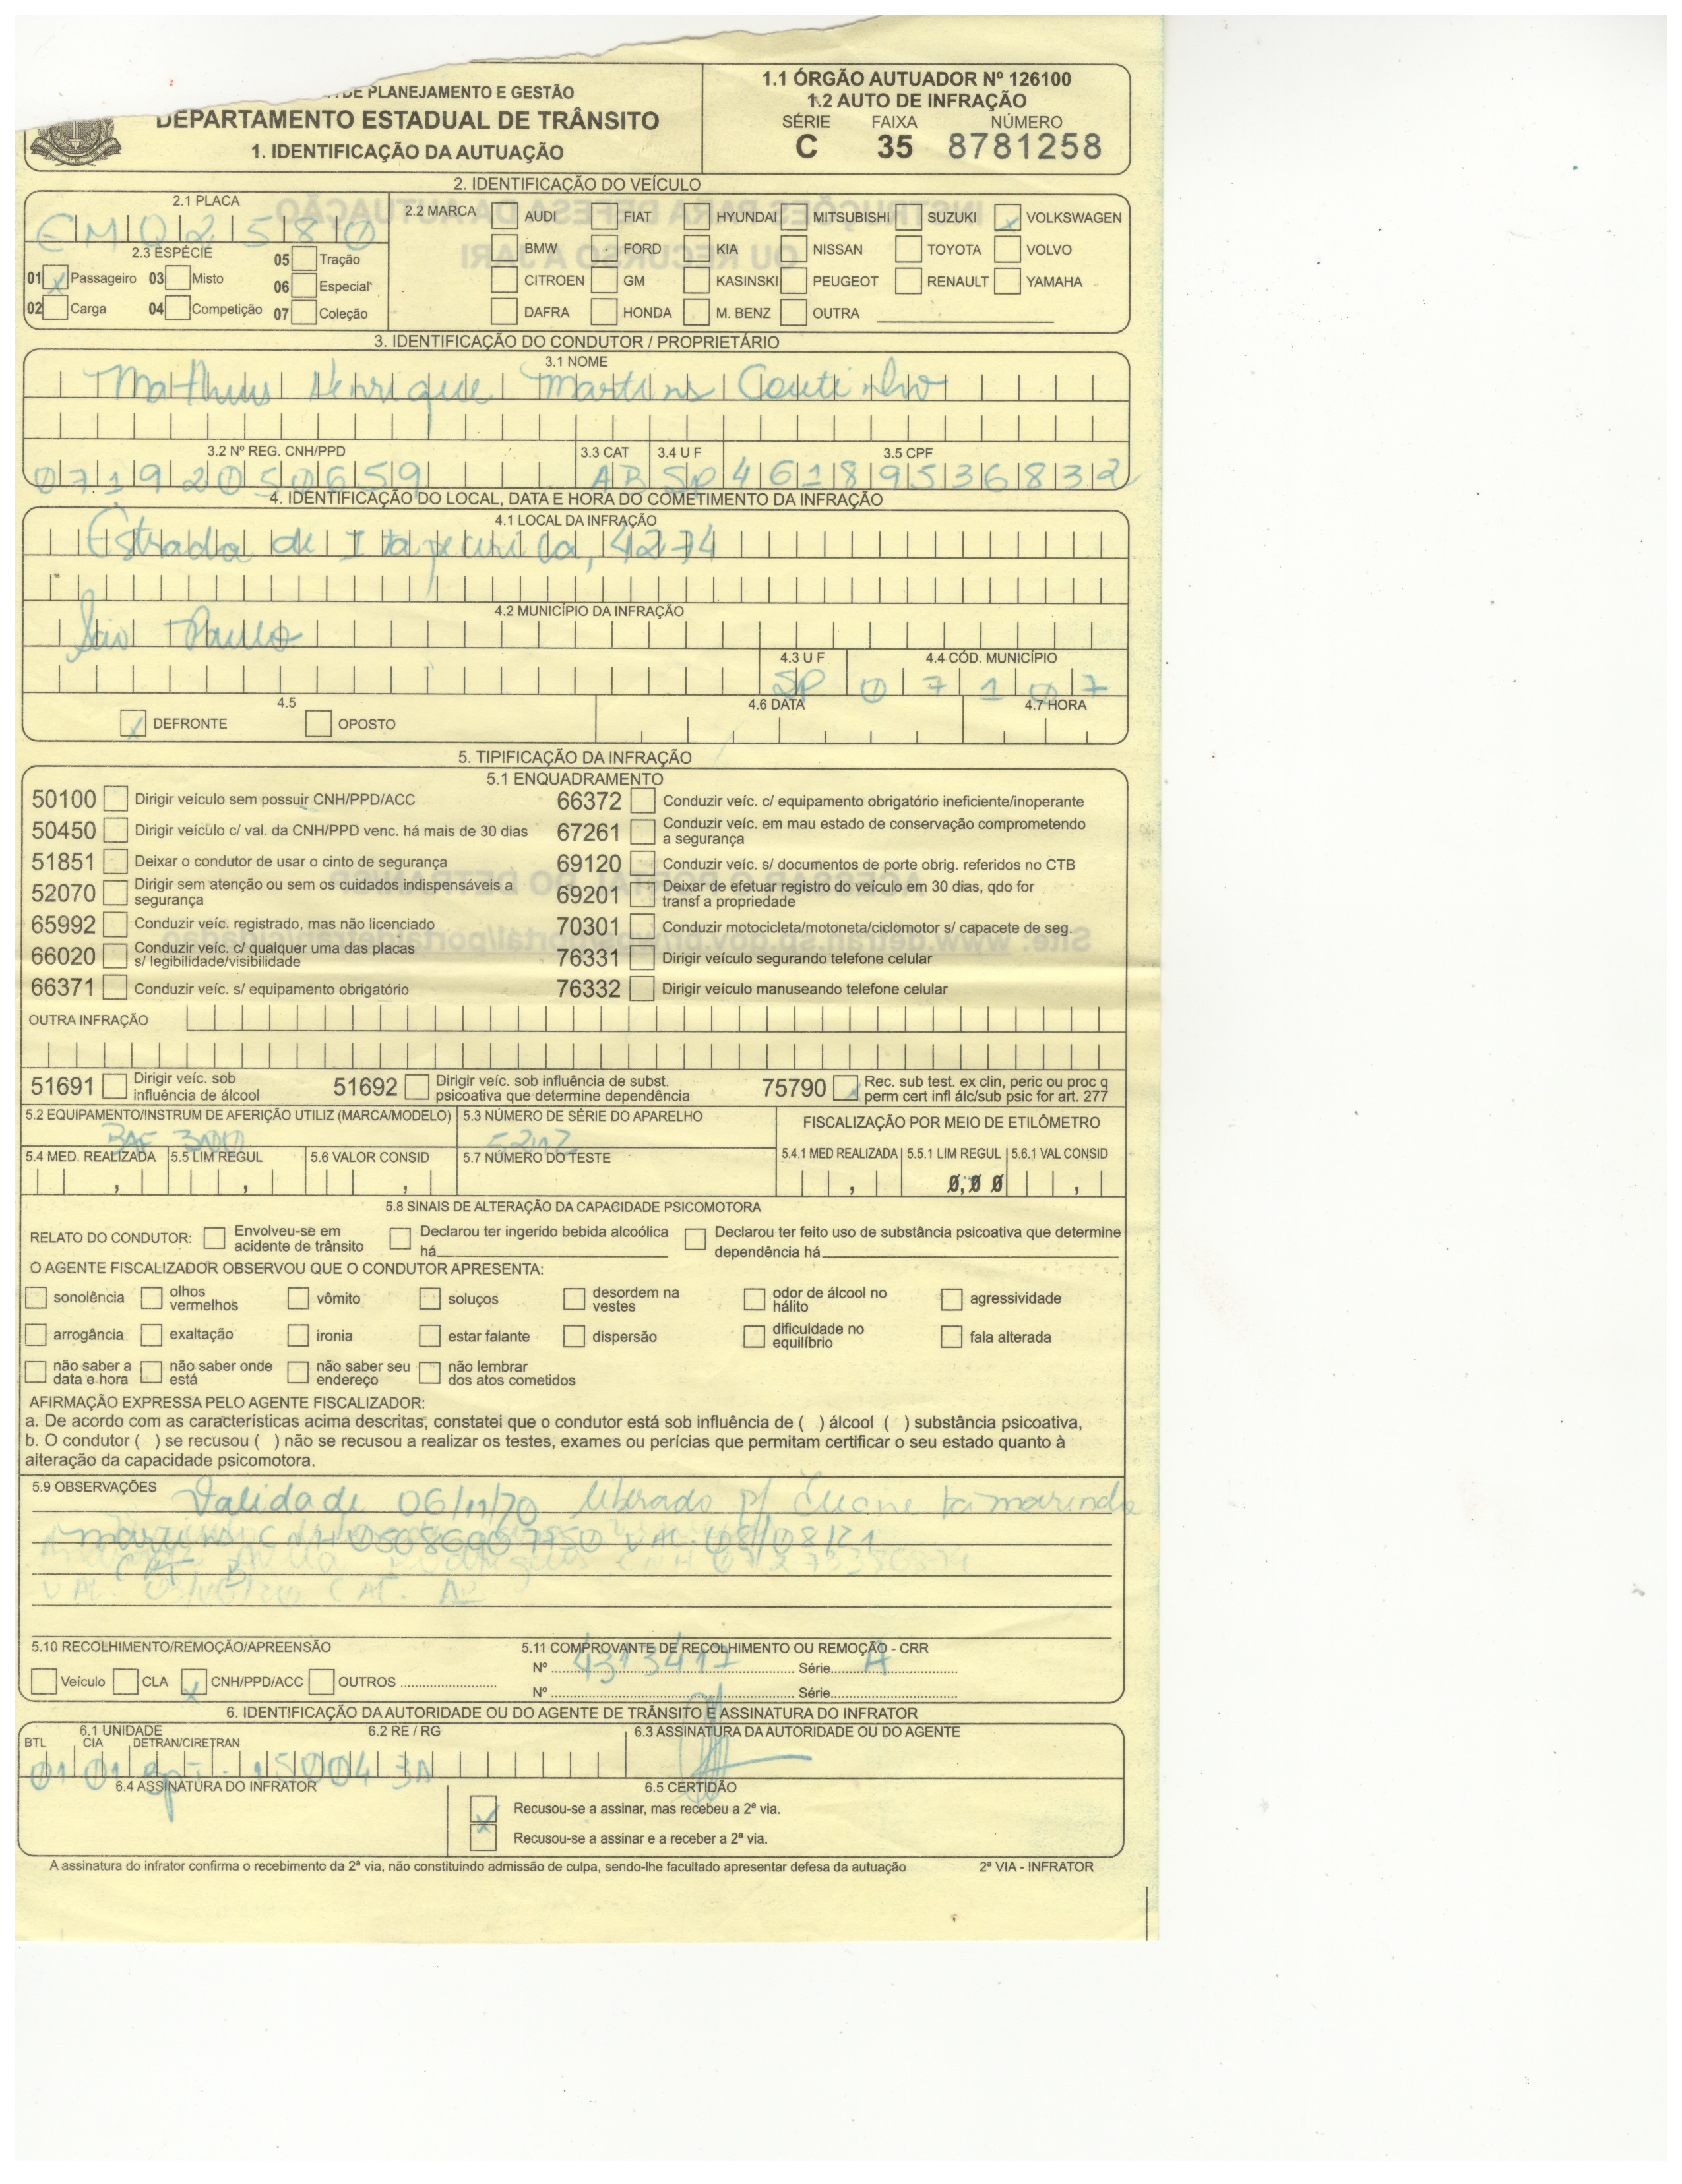 DE PLANEJAMENTO E GESTÃO
DEPARTAMENTO ESTADUAL DE TRÂNSITO
1. IDENTIFICAÇÃO DA AUTUAÇÃO
1.1 ÓRGÃO AUTUADOR Nº 126100
1.2 AUTO DE INFRAÇÃO
SÉRIE FAIXA NÚMERO
C 35 8781258
2. IDENTIFICAÇÃO DO VEÍCULO
2.1 PLACA
EMQ2580
2.2 MARCA
AUDI FIAT HYUNDAI MITSUBISHI SUZUKI VOLKSWAGEN
BMW FORD KIA NISSAN TOYOTA VOLVO
CITROEN GM KASINSKI PEUGEOT RENAULT YAMAHA
DAFRA HONDA M. BENZ OUTRA
2.3 ESPÉCIE
01 Passageiro 03 Misto 05 Tração
02 Carga 04 Competição 06 Especial
07 Coleção
3. IDENTIFICAÇÃO DO CONDUTOR / PROPRIETÁRIO
3.1 NOME
Matheus Henrique Martins Coutinho
3.2 Nº REG. CNH/PPD 3.3 CAT 3.4 U F 3.5 CPF
07192050659 AB SP 46189536832
4. IDENTIFICAÇÃO DO LOCAL, DATA E HORA DO COMETIMENTO DA INFRAÇÃO
4.1 LOCAL DA INFRAÇÃO
Estrada de Itapecerica, 4274
4.2 MUNICÍPIO DA INFRAÇÃO
São Paulo
4.3 U F 4.4 CÓD. MUNICÍPIO
SP 07107
4.5 4.6 DATA 4.7 HORA
DEFRONTE OPOSTO
5. TIPIFICAÇÃO DA INFRAÇÃO
5.1 ENQUADRAMENTO
50100 Dirigir veículo sem possuir CNH/PPD/ACC
50450 Dirigir veículo c/ val. da CNH/PPD venc. há mais de 30 dias
51851 Deixar o condutor de usar o cinto de segurança
52070 Dirigir sem atenção ou sem os cuidados indispensáveis a
segurança
65992 Conduzir veíc. registrado, mas não licenciado
66020 Conduzir veíc. c/ qualquer uma das placas
s/ legibilidade/visibilidade
66371 Conduzir veíc. s/ equipamento obrigatório
66372 Conduzir veíc. c/ equipamento obrigatório ineficiente/inoperante
67261 Conduzir veíc. em mau estado de conservação comprometendo
a segurança
69120 Conduzir veíc. s/ documentos de porte obrig. referidos no CTB
69201 Deixar de efetuar registro do veículo em 30 dias, qdo for
transf a propriedade
70301 Conduzir motocicleta/motoneta/ciclomotor s/ capacete de seg.
76331 Dirigir veículo segurando telefone celular
76332 Dirigir veículo manuseando telefone celular
OUTRA INFRAÇÃO
51691 Dirigir veíc. sob
influência de álcool
51692 Dirigir veíc. sob influência de subst.
psicoativa que determine dependência
75790 Rec. sub test. ex clin, peric ou proc q
perm cert infl álc/sub psic for art. 277
5.2 EQUIPAMENTO/INSTRUM DE AFERIÇÃO UTILIZ (MARCA/MODELO) 5.3 NÚMERO DE SÉRIE DO APARELHO
FISCALIZAÇÃO POR MEIO DE ETILÔMETRO
5.4 MED. REALIZADA 5.5 LIM REGUL 5.6 VALOR CONSID 5.7 NÚMERO DO TESTE
5.4.1 MED REALIZADA 5.5.1 LIM REGUL 5.6.1 VAL CONSID
, , , , 0,00 ,
5.8 SINAIS DE ALTERAÇÃO DA CAPACIDADE PSICOMOTORA
RELATO DO CONDUTOR: Envolveu-se em
acidente de trânsito
Declarou ter ingerido bebida alcoólica
há
Declarou ter feito uso de substância psicoativa que determine
dependência há
O AGENTE FISCALIZADOR OBSERVOU QUE O CONDUTOR APRESENTA:
sonolência olhos vermelhos vômito soluços desordem na vestes odor de álcool no hálito agressividade
arrogância exaltação ironia estar falante dispersão dificuldade no equilíbrio fala alterada
não saber a data e hora não saber onde está não saber seu endereço não lembrar dos atos cometidos
AFIRMAÇÃO EXPRESSA PELO AGENTE FISCALIZADOR:
a. De acordo com as características acima descritas, constatei que o condutor está sob influência de ( ) álcool ( ) substância psicoativa,
b. O condutor ( ) se recusou ( ) não se recusou a realizar os testes, exames ou perícias que permitam certificar o seu estado quanto à
alteração da capacidade psicomotora.
5.9 OBSERVAÇÕES
Validade 06/11/70 liberado p/
CNH 05086907750 VAL. 08/08/21
CAT. B
CAT. AB
5.10 RECOLHIMENTO/REMOÇÃO/APREENSÃO
Veículo CLA CNH/PPD/ACC OUTROS
5.11 COMPROVANTE DE RECOLHIMENTO OU REMOÇÃO - CRR
Nº 4313417 Série A
Nº Série
6. IDENTIFICAÇÃO DA AUTORIDADE OU DO AGENTE DE TRÂNSITO E ASSINATURA DO INFRATOR
6.1 UNIDADE 6.2 RE / RG 6.3 ASSINATURA DA AUTORIDADE OU DO AGENTE
BTL CIA DETRAN/CIRETRAN
01 01
6.4 ASSINATURA DO INFRATOR 6.5 CERTIDÃO
Recusou-se a assinar, mas recebeu a 2ª via.
Recusou-se a assinar e a receber a 2ª via.
A assinatura do infrator confirma o recebimento da 2ª via, não constituindo admissão de culpa, sendo-lhe facultado apresentar defesa da autuação 2ª VIA - INFRATOR